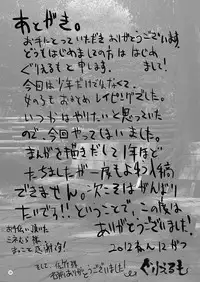 あとがき。
お手にとっていただきありがとうございます。
どうもはじめましての方ははじめまして!
ぐりえるもと申します。
今回は少年だけでなくて、
女の子もまとめてレイピングでした。
いつかはやりたいと思っていた
ので、今回やってしまいました。
まんがを描きだして1年ほど
たちましたが一度もよゆう入稿
できません。次こそはがんばり
たいでう!!ということで、この度は
ありがとうございました!
2012年12がつ
ぐりえるも
お手伝い頂いた
まこと感謝!
ありがとうございました!